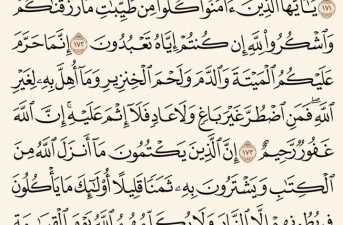 ١٧١ يَٰٓأَيُّهَا ٱلَّذِينَ ءَامَنُوا۟ كُلُوا۟ مِن طَيِّبَٰتِ مَا رَزَقْنَٰكُمْ
وَٱشْكُرُوا۟ لِلَّهِ إِن كُنتُمْ إِيَّاهُ تَعْبُدُونَ ١٧٢ إِنَّمَا حَرَّمَ
عَلَيْكُمُ ٱلْمَيْتَةَ وَٱلدَّمَ وَلَحْمَ ٱلْخِنزِيرِ وَمَآ أُهِلَّ بِهِۦ لِغَيْرِ
ٱللَّهِ ۖ فَمَنِ ٱضْطُرَّ غَيْرَ بَاغٍ وَلَا عَادٍ فَلَآ إِثْمَ عَلَيْهِ ۚ إِنَّ ٱللَّهَ
غَفُورٌ رَّحِيمٌ ١٧٣ إِنَّ ٱلَّذِينَ يَكْتُمُونَ مَآ أَنزَلَ ٱللَّهُ مِنَ
ٱلْكِتَٰبِ وَيَشْتَرُونَ بِهِۦ ثَمَنًا قَلِيلًا أُو۟لَٰٓئِكَ مَا يَأْكُلُونَ
فِى بُطُونِهِمْ إِلَّا ٱلنَّارَ وَلَا يُكَلِّمُهُمُ ٱللَّهُ يَوْمَ ٱلْقِيَٰمَةِ